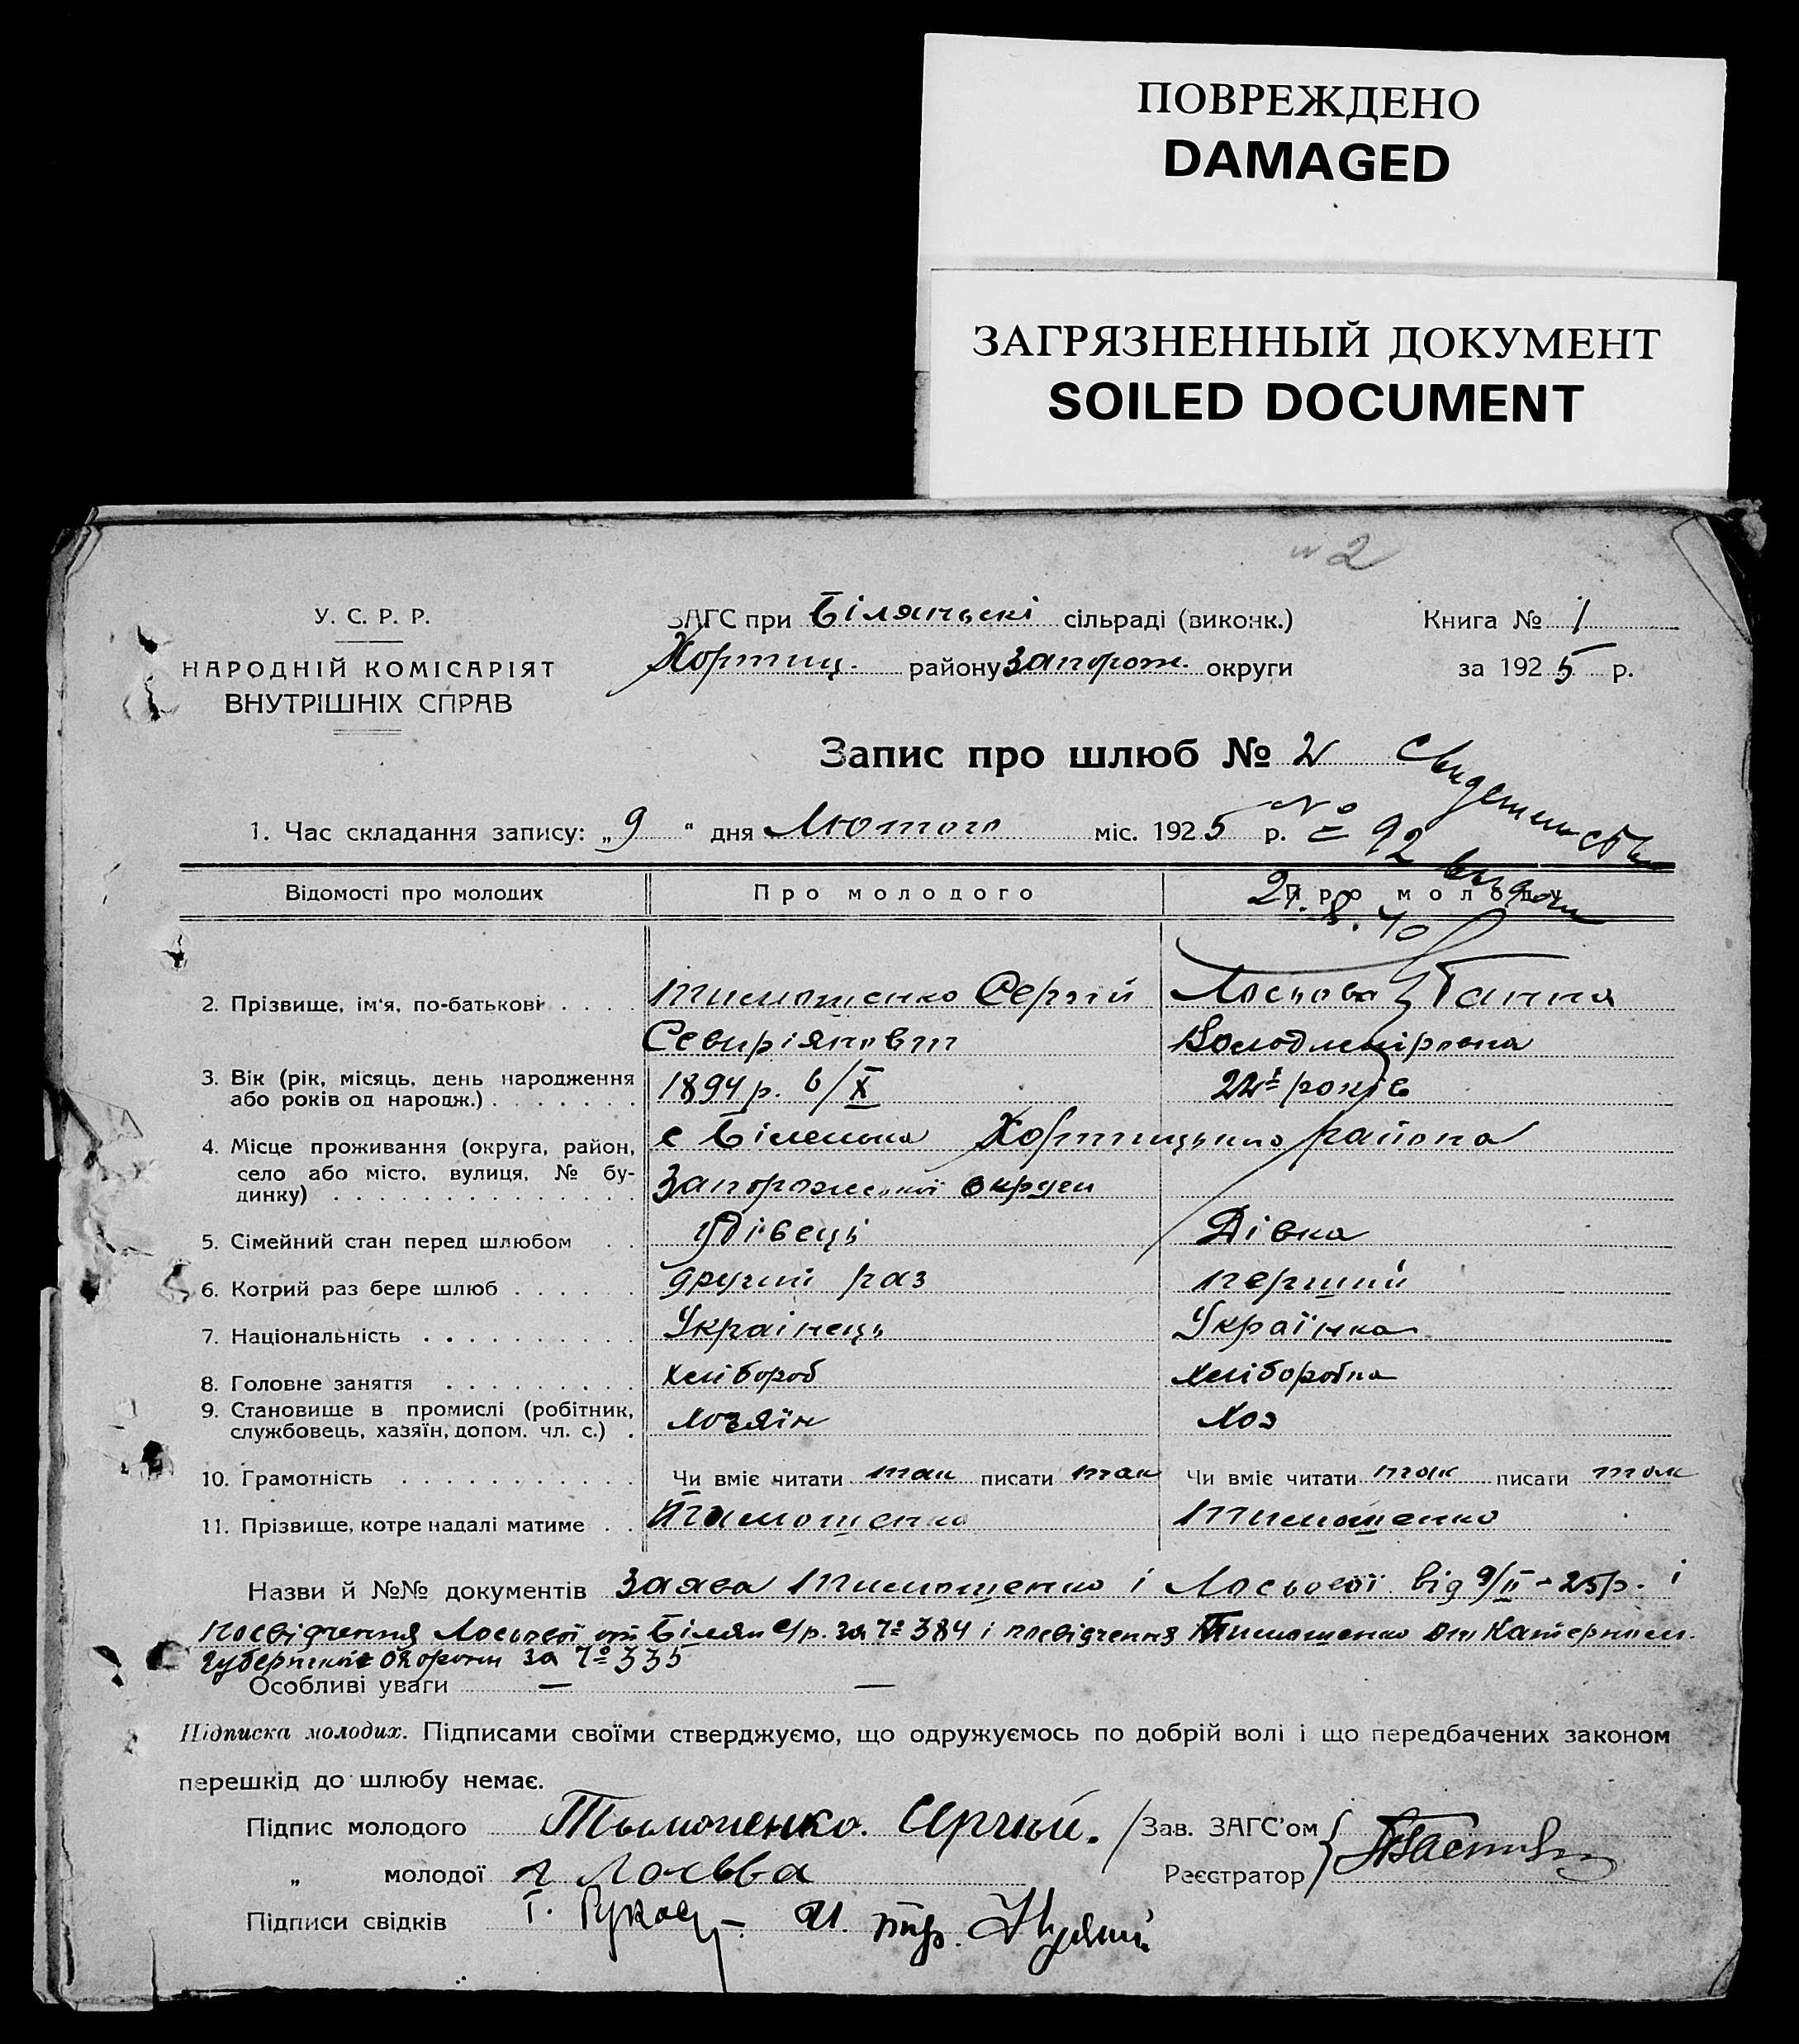 ПОВРЕЖДЕНО
DAMAGED
ЗАГРЯЗНЕННЫЙ ДОКУМЕНТ
SOILED DOCUMENT
№ 2
У. С. Р. Р.
НАРОДНІЙ КОМІСАРІЯТ
ВНУТРІШНІХ СПРАВ
ЗАГС при Біляньскі сільраді (виконк.)
Хортиц. району Запорож. округи
Книга № 1
за 1925 р.
Запис про шлюб № 2
Свидетельство
№ 92 выдано
21.8.40
1. Час складання запису: „9“ дня Лютого міс. 1925 р.
Відомості про молодих Про молодого Про молоду
2. Прізвище, ім'я, по-батькові . . . . Тимошенко Сергій Лосьова Ганна
Севиріянович Володимировна
3. Вік (рік, місяць, день народження або років од народж.) . . . . . . . 1894 р. 6/X 22 років
4. Місце проживання (округа, район, село або місто, вулиця, № будинку) . . . с Біленька Хортицького района
Запорожської округи
5. Сімейний стан перед шлюбом . . Удівець Дівка
6. Котрий раз бере шлюб . . . . . . другий раз перший
7. Національність . . . . . . . . . . Українець Українка
8. Головне заняття . . . . . . . . . хлібороб хліборобка
9. Становище в промислі (робітник, службовець, хазяїн, допом. чл. с.) . хозяїн Хоз
10. Грамотність . . . . . . . . . . . Чи вміє читати так писати так Чи вміє читати так писати так
11. Прізвище, котре надалі матиме . . Тимошенко Тимошенко
Назви й №№ документів Заява Тимошенко і Лосьової від 9/II-25р. і
посвідчення Лосьової от Білян с/р. за № 384 і посвідчення Тимошенко от Катеринсл.
губернської охорони за № 335
Особливі уваги — —
Підписка молодих. Підписами своїми стверджуємо, що одружуємось по добрій волі і що передбачених законом
перешкід до шлюбу немає.
Підпис молодого Тымошенко. Сергый. Зав. ЗАГС'ом
„ молодої Лосьва Реєстратор
Підписи свідків Г.